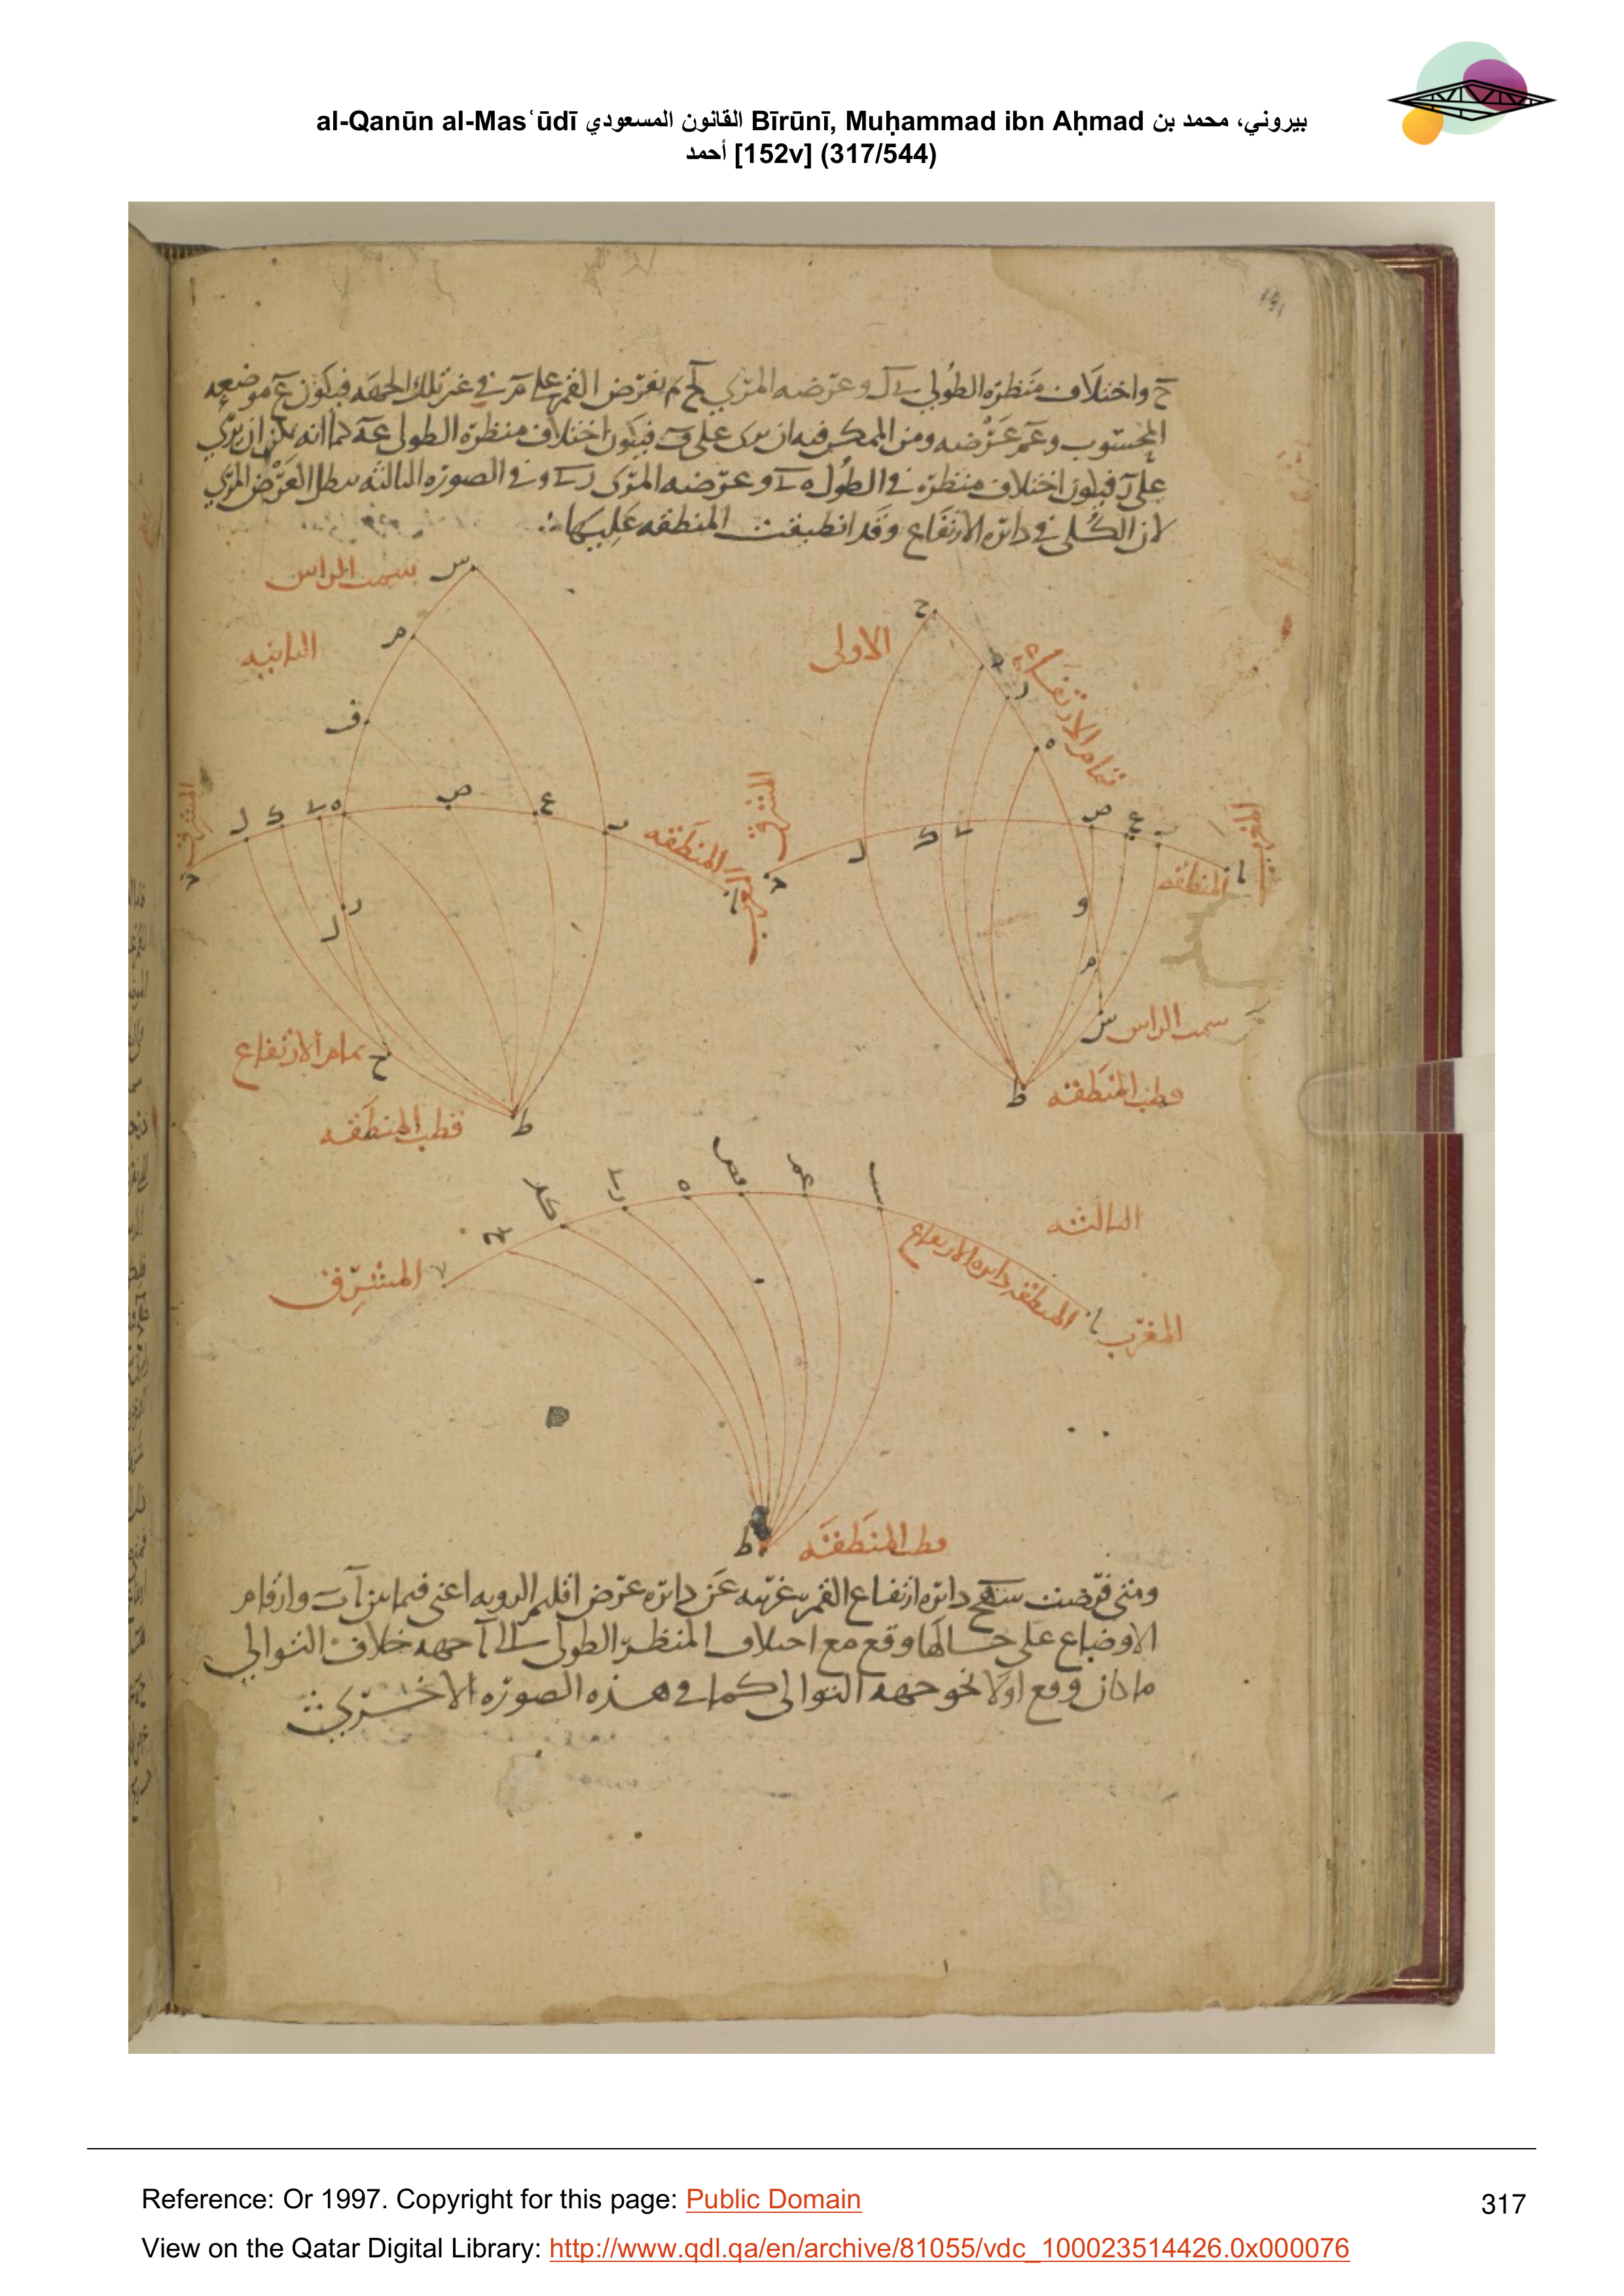 al-Qanūn al-Masʿūdī القانون المسعودي Bīrūnī, Muḥammad ibn Aḥmad بيروني، محمد بن
أحمد [152v] (317/544)
ح واختلاف منظره الطولي وعرضه المرئي لح ثم نفرض القمر على م في غير تلك الجهه فيكون ع موضعه
المحسوب وعم عرضه ومن الممكن فيه ان يرى على ف فيكون اختلاف منظره الطولي عه كما انه يمكن ان يرى
على ر فيكون اختلاف منظره في الطول ه وعرضه المرئى وفي الصوره الثالثه يبطل العرض المرئي
لان الكلى في دائره الارتفاع وقد انطبقت المنطقه عليها
س سمت الراس
الثانيه
م
ف
المشرق
ل ك ه ص ع
المنطقه
المغرب
ر
ل
ح تمام الارتفاع
ط
قطب المنطقه
الاولى
ح
ر
ه
تمام الارتفاع
المشرق
ل ك ص ع
المنطقه
المغرب
و
م
س سمت الراس
ط قطب المنطقه
الثالثه
ه
المشرق
المنطقه دائره الارتفاع
المغرب
ط قطب المنطقه
ومتى فرضت دائره ارتفاع القمر غربيه عن دائره عرض اقليم الرويه اعني فيما بين وارقام
الاوضاع على حالها وقع مع اختلاف المنظر الطولى الى ا جهه خلاف التوالي
ما كان وقع اولا نحو جهه التوالى كما في هذه الصوره الاخرى
Reference: Or 1997. Copyright for this page: Public Domain
317
View on the Qatar Digital Library: http://www.qdl.qa/en/archive/81055/vdc_100023514426.0x000076